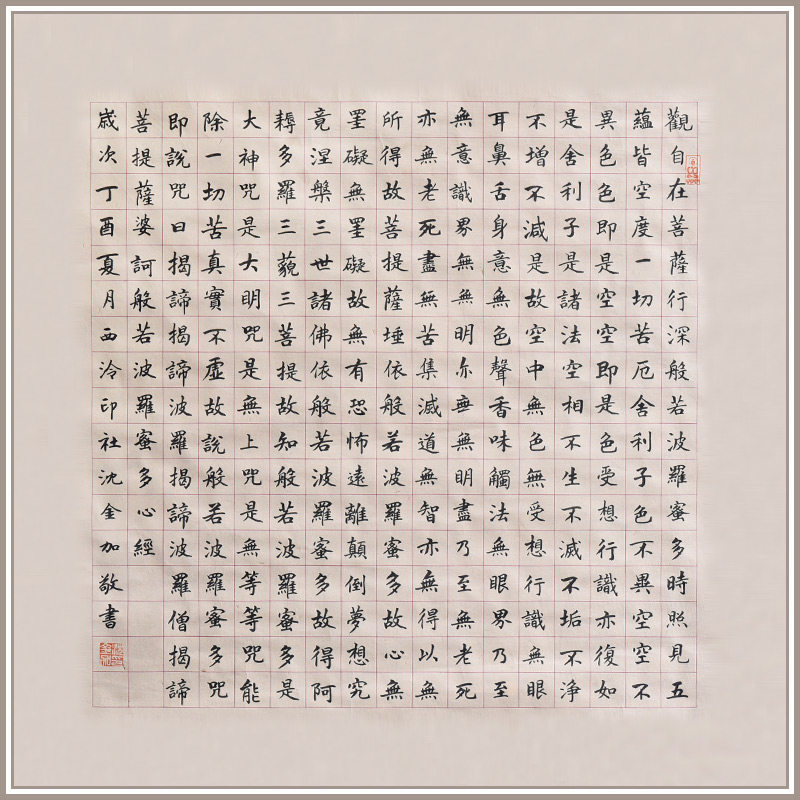 觀自在菩薩行深般若波羅蜜多時照見五
蘊皆空度一切苦厄舍利子色不異空空不
異色色即是空空即是色受想行識亦復如
是舍利子是諸法空相不生不滅不垢不净
不增不減是故空中無色無受想行識無眼
耳鼻舌身意無色聲香味觸法無眼界乃至
無意識界無無明亦無無明盡乃至無老死
亦無老死盡無苦集滅道無智亦無得以無
所得故菩提薩埵依般若波羅蜜多故心無
罣礙無罣礙故無有恐怖遠離顛倒夢想究
竟涅槃三世諸佛依般若波羅蜜多故得阿
耨多羅三藐三菩提故知般若波羅蜜多是
大神咒是大明咒是無上咒是無等等咒能
除一切苦真實不虛故說般若波羅蜜多咒
即說咒曰揭諦揭諦波羅揭諦波羅僧揭諦
菩提薩婆訶般若波羅蜜多心經
歲次丁酉夏月西泠印社沈金加敬書